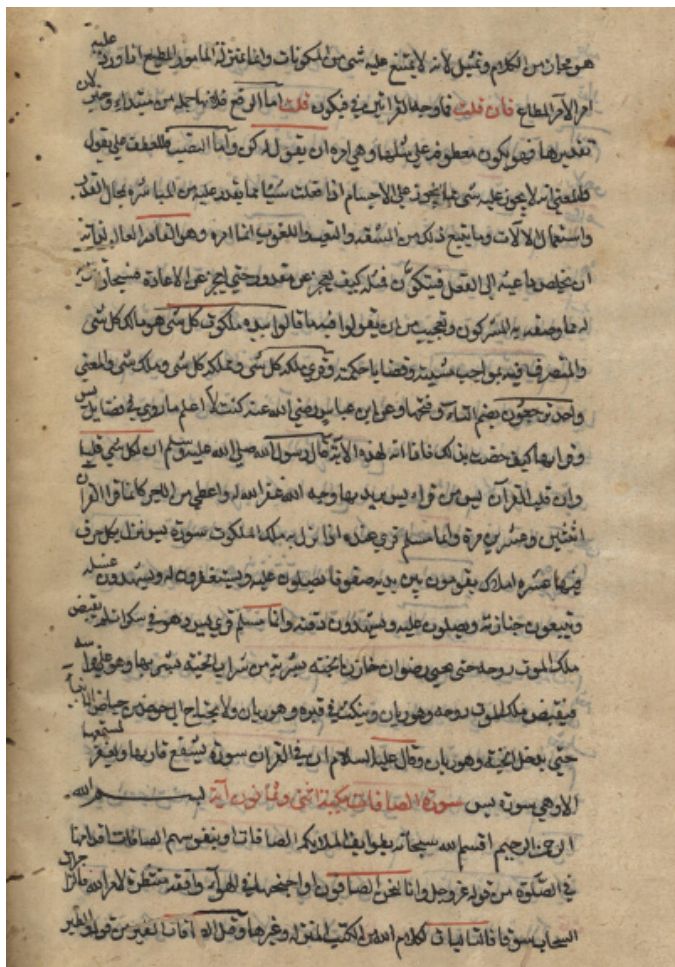 هو مجاز من الكلام وتمثيل لانه لا يمتنع عليه شى من المكونات وانما بمنزلة المامور المطيع اذا ورد عليه
امر الآمر المطاع فان قلت فما وجه القراتين في فيكون قلت اما الرفع فلانها جملة من مبتداء وخبر لان
تقديرها فهو يكون معطوفه على مثلها وهي امره ان يقول له كن واما النصب فللعطف على يقول
فالمعنى انه لا يجوز عليه شى مما يجوز على الاجسام اذا فعلت شيا مما يقدر عليه من المباشره بمحال القدر
واستعمال الالات وما يتبع ذلك من المشقه والتعب واللغوب انما امره وهو القادر العالم لذاته
ان يخلص داعيه إلى الفعل فيتكون فمثله كيف يعجز عن مقدور حتى يعجز عن الاعادة فسبحان تنزيه
له مما وصفه به المشركون وتعجيب من ان يقولوا فيه ما قالوا بيده ملكوت كل شى هو مالك كل شى
والمتصرف فيه بمواجب مشيته وقضايا حكمته وقرى ملكة كل شى ومملكة كل شى وملك شى والمعنى
واحد ترجعون بضم التاء وفتحها وعن ابن عباس رضي الله عنه كنت لا اعلم ما روي في فضايل يس
وقراتها كيف خصت بذلك فاذا انه لهذه الاية قال رسول الله صلى الله عليه وسلم ان لكل شى قلبا
وان قلب القرآن يس من قراء يس يريد بها وجه الله غفر الله له واعطي من الاجر كانما قرا القرآن
اثنتين وعشرين مرة وايما مسلم قرى عنده اذا نزل به ملك الموت سورة يس نزل بكل حرف
منها عشره املاك يقومون بين يديه صفوفا يصلون عليه ويستغفرون له ويشهدون غسله
ويتبعون جنازته ويصلون عليه ويشهدون دفنه وايما مسلم قرى يس وهو في سكراته لم يقبض
ملك الموت روحه حتى يحييه رضوان خازن الجنة بشربة من شراب الجنة يشربها وهو على فراشه
فيقبض ملك الموت روحه وهو ريان ويمكث في قبره وهو ريان ولا يحتاج الى حوض من حياض الانبيا
حتى يدخل الجنة وهو ريان وقال عليه السلام ان في القرآن سورة يشفع قاريها ويغفر لمستمعها
الا وهي سورة يس سورة الصافات مكية ماية وثمانون آية بسم الله
الرحمن الرحيم اقسم الله سبحانه بطوايف الملايكه الصافات او بنفوسهم الصافات اقدامها
في الصلوة من قوله عز وجل وانا لنحن الصافون او اجنحها في الهوآء واقفه منتظرة لامر الله فالزاجرات
السحاب سوقا فالتاليات لكلام الله من الكتب المنزله وغيرها وقيل الصافات الطير من قوله والطير